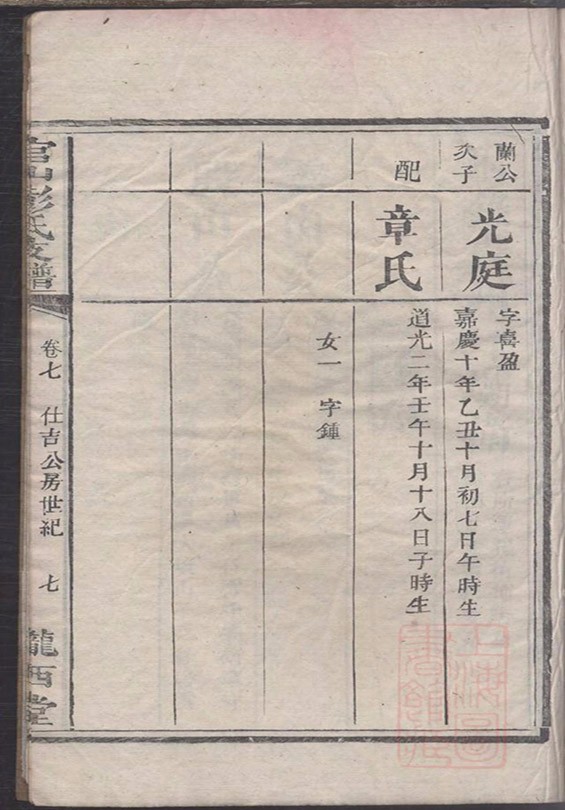 蘭公
次子
光庭
字喜盈
嘉慶十年乙丑十月初七日午時生
配
章氏
道光二年壬午十月十八日子時生
女一 字鍾
官山彭氏支譜
卷七 仕吉公房世紀 七
隴西堂
上海圖書館藏